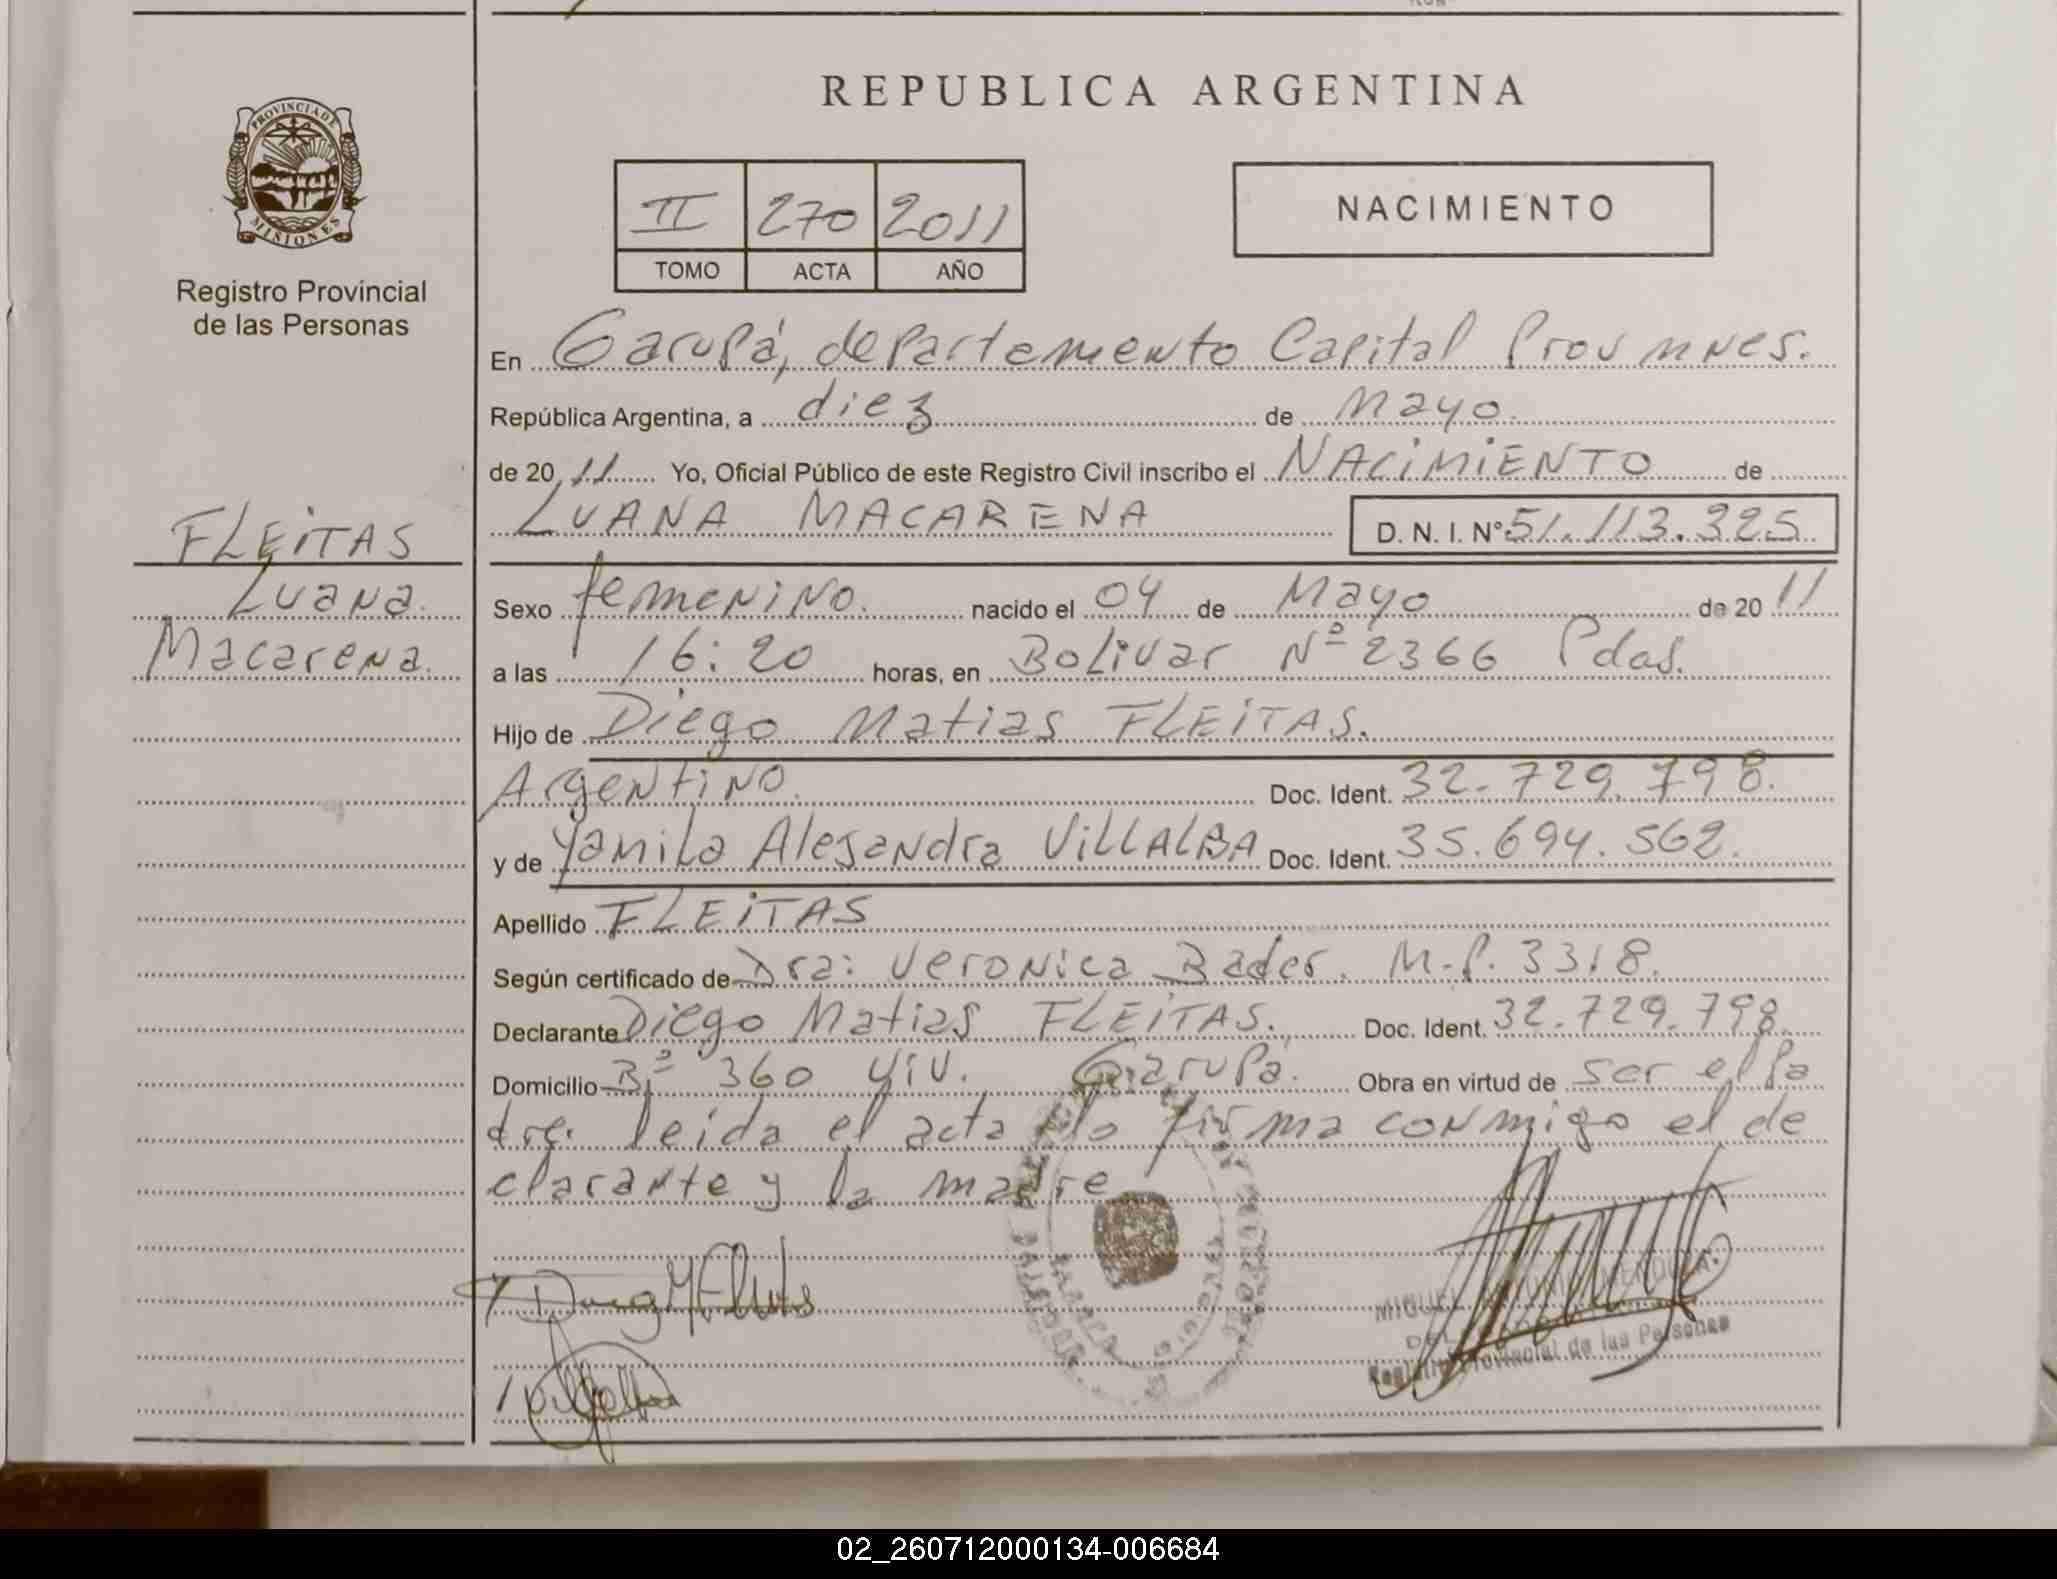 REPUBLICA ARGENTINA
PROVINCIA DE
MISIONES
Registro Provincial
de las Personas
II 270 2011
TOMO ACTA AÑO
NACIMIENTO
En Garupá, departamento Capital Prov mnes.
República Argentina, a diez de Mayo.
de 20 11 Yo, Oficial Público de este Registro Civil inscribo el NACIMIENTO de
LUANA MACARENA D. N. I. Nº 51.113.325
FLEITAS
Luana
Macarena.
Sexo femenino. nacido el 04 de Mayo de 20 11
a las 16:20 horas, en Bolivar Nº 2366 Pdas.
Hijo de Diego Matias FLEITAS.
Argentino. Doc. Ident. 32.729.798.
y de Yamila Alejandra VILLALBA Doc. Ident. 35.694.562.
Apellido FLEITAS
Según certificado de Dra: Veronica Bader. M.P. 3318.
Declarante Diego Matias FLEITAS. Doc. Ident. 32.729.798
Domicilio Bº 360 viv. Garupá. Obra en virtud de ser el pa
dre. leida el acta la firma conmigo el de
clarante y la madre
MIGUEL MENDOZA
Registro Provincial de las Personas
02_260712000134-006684